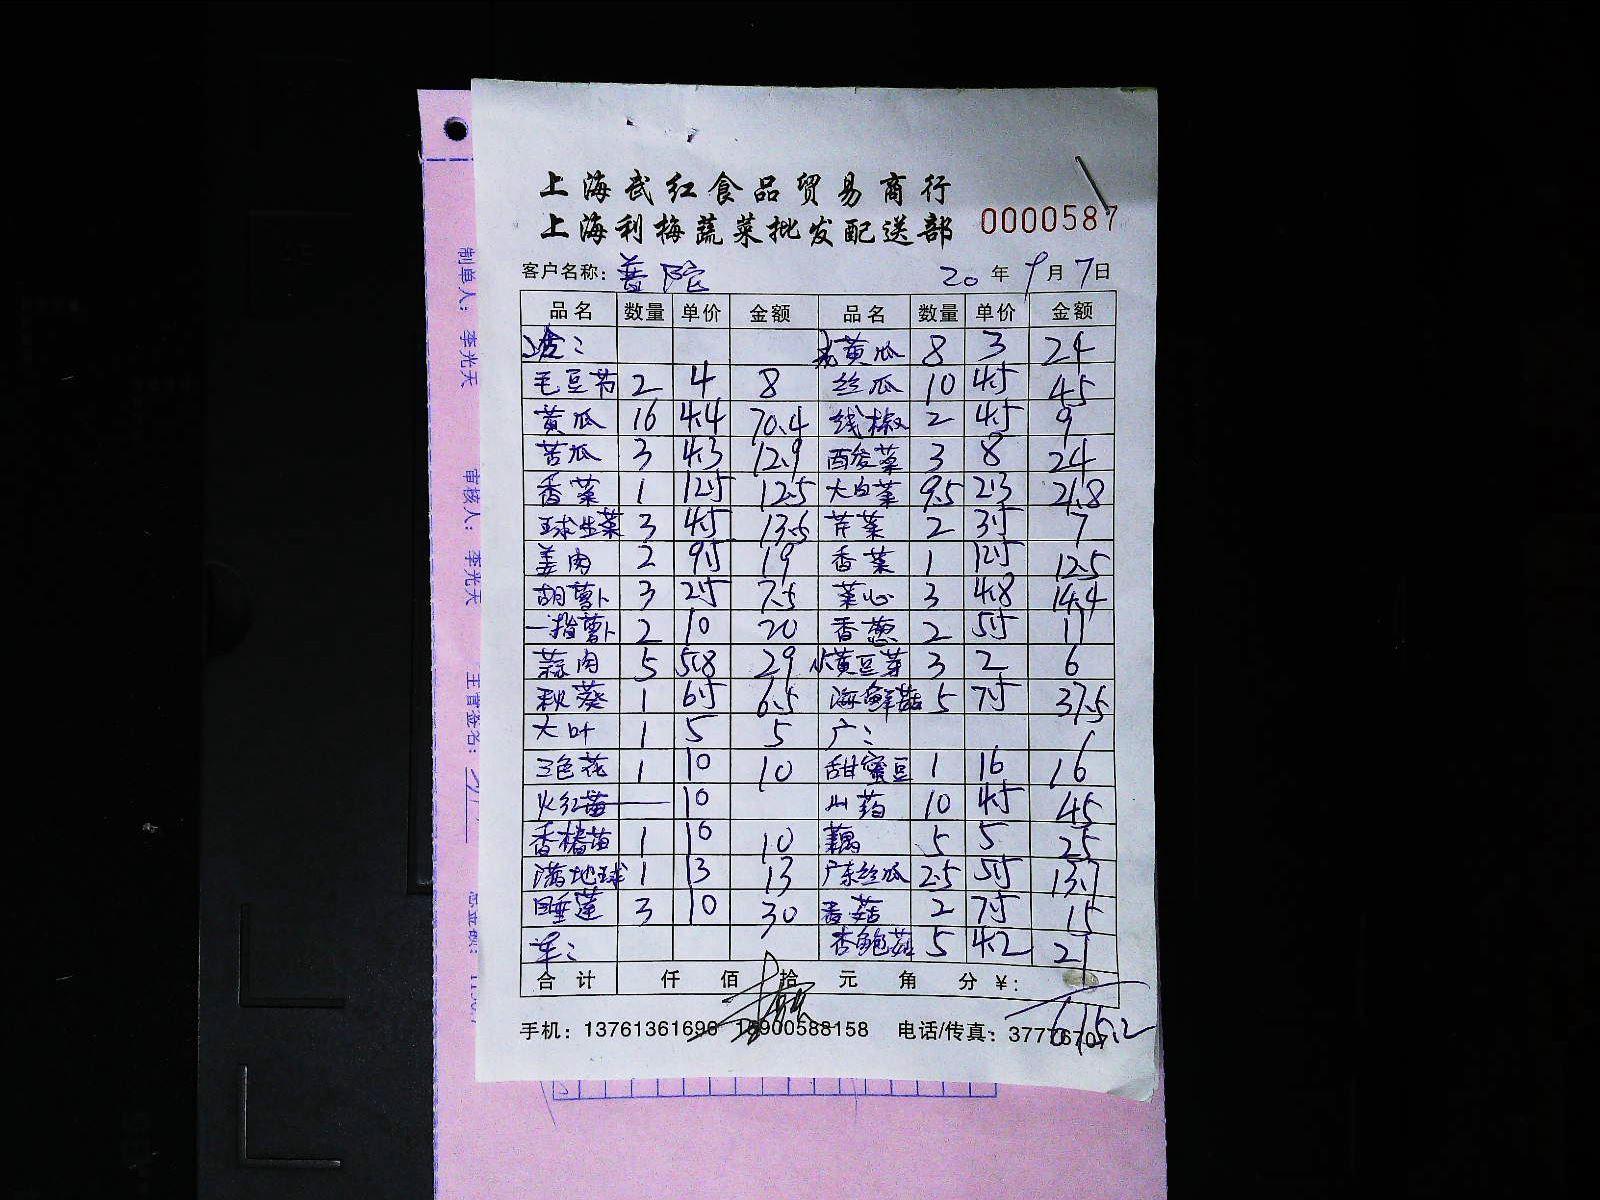 上海武红食品贸易商行
上海利梅蔬菜批发配送部 0000587
客户名称: 普陀 20 年 9 月 7 日
品名 数量 单价 金额 品名 数量 单价 金额
黄瓜 8 3 24
毛豆节 2 4 8 丝瓜 10 4.5 45
黄瓜 16 4.4 70.4 线椒 2 4.5 9
苦瓜 3 4.3 12.9 酸菜 3 8 24
香菜 1 12.5 12.5 大白菜 9.5 2.3 21.8
球生菜 3 4.5 13.5 芹菜 2 3.5 7
姜肉 2 9.5 19 香菜 1 12.5 12.5
胡萝卜 3 2.5 7.5 菜心 3 4.8 14.4
一指萝卜 2 10 20 香葱 2 5.5 11
蒜肉 5 5.8 29 小黄豆芽 3 2 6
秋葵 1 6.5 6.5 海鲜菇 5 7.5 37.5
大叶 1 5 5 广:
三色花 1 10 10 甜蜜豆 1 16 16
火红苗 10 山药 10 4.5 45
香椿苗 1 10 10 藕 5 5 25
满地球 1 13 13 广东丝瓜 2.5 5.5 13.7
睡莲 3 10 30 香菇 2 7.5 15
杏鲍菇 5 4.2 21
合计 仟 佰 拾 元 角 分 ¥: 615.2
手机: 13761361696 18900588158 电话/传真: 37776707
制单人: 李光天
审核人: 李光天
主管签名: